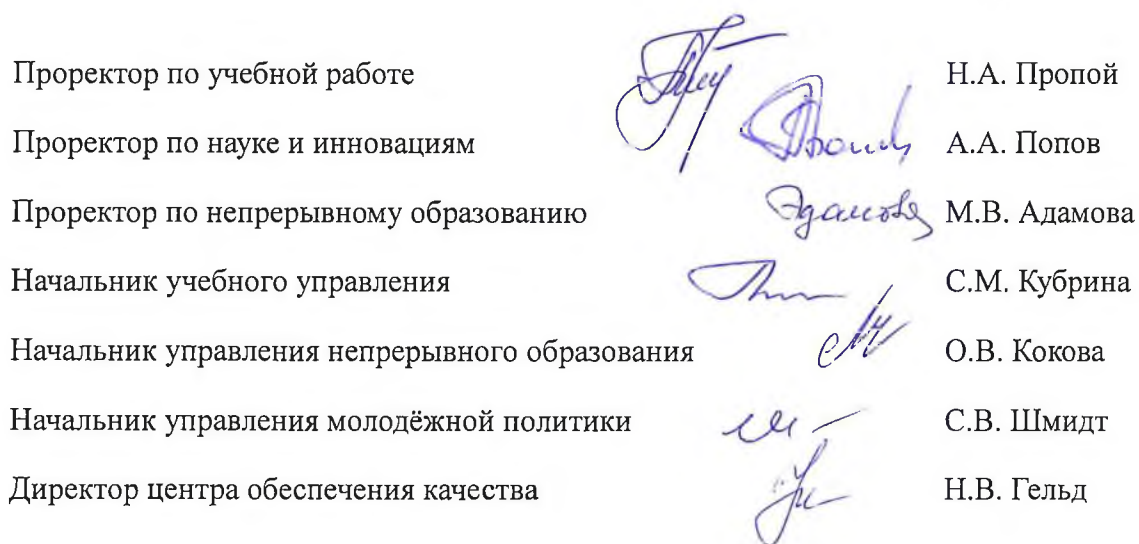 Проректор по учебной работе Н.А. Пропой
Проректор по науке и инновациям А.А. Попов
Проректор по непрерывному образованию М.В. Адамова
Начальник учебного управления С.М. Кубрина
Начальник управления непрерывного образования О.В. Кокова
Начальник управления молодёжной политики С.В. Шмидт
Директор центра обеспечения качества Н.В. Гельд